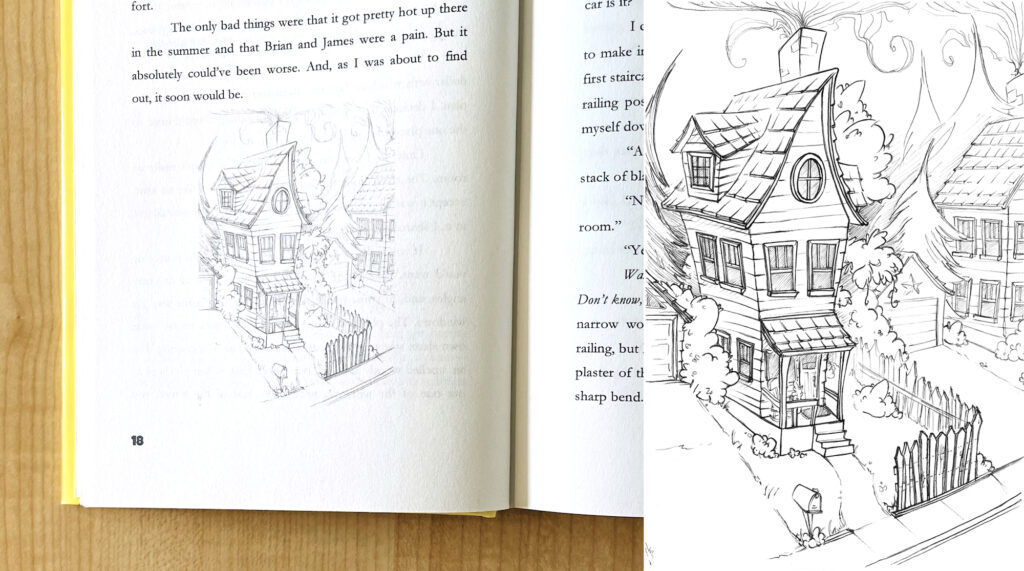 fort.
The only bad things were that it got pretty hot up there
in the summer and that Brian and James were a pain. But it
absolutely could’ve been worse. And, as I was about to find
out, it soon would be.
18
car is it?
I
to make
first stairca
railing pos
myself dov
“A
stack of bla
“N
room.”
“Ye
Wa
Don’t know,
narrow wo
railing, but
plaster of th
sharp bend.